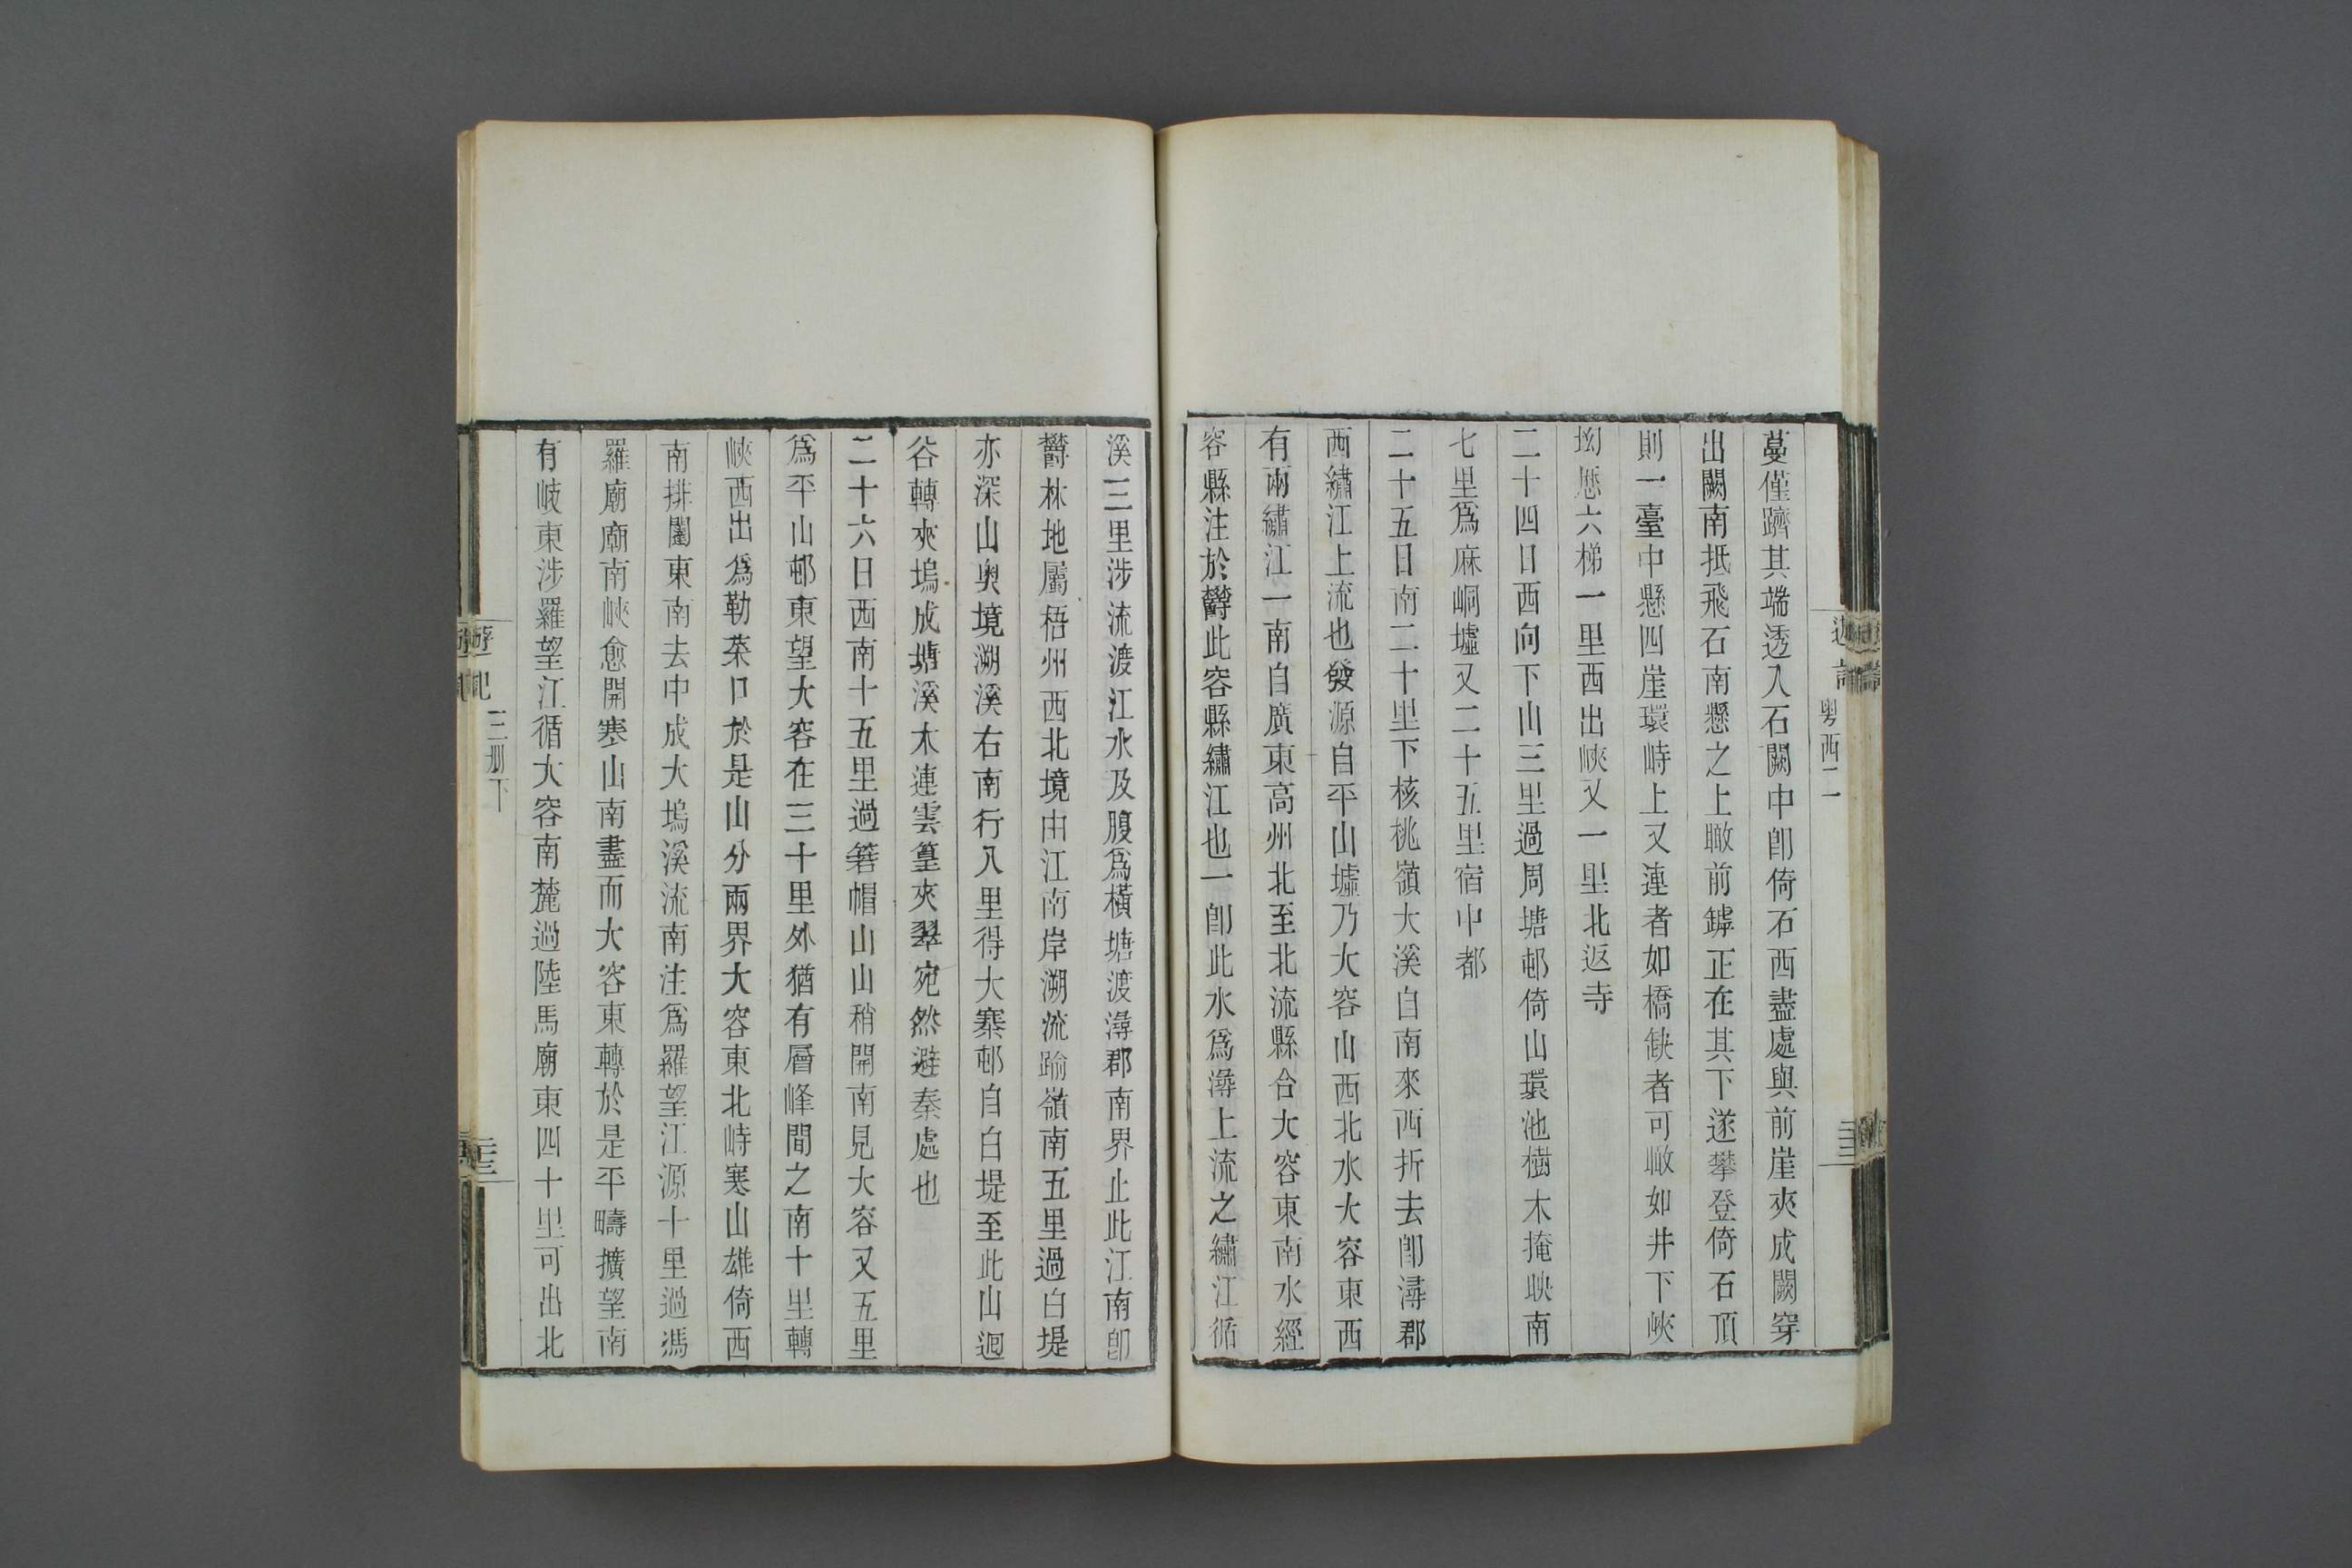 粵西二
蔓僅躋其端透入石闕中卽倚石西盡處與前崖夾成闕穿
出闕南抵飛石南懸之上瞰前罅正在其下遂攀登倚石頂
則一臺中懸四崖環峙上又連者如橋缺者可瞰如井下峽
坳歷六梯一里西出峽又一里北返寺
二十四日西向下山三里過周塘邨倚山環池樹木掩映南
七里爲麻峒墟又二十五里宿中都
二十五日南二十里下核桃嶺大溪自南來西折去卽潯郡
西繡江上流也發源自平山墟乃大容山西北水大容東西
有兩繡江一南自廣東高州北至北流縣合大容東南水經
容縣注於欝此容縣繡江也一卽此水爲潯上流之繡江循
溪三里涉流渡江水及腹爲橫塘渡潯郡南界止此江南卽
欝林地屬梧州西北境由江南岸溯流踰嶺南五里過白堤
亦深山奧境溯溪右南行八里得大寨邨自白堤至此山迴
谷轉夾塢成塘溪木連雲篁夾翠宛然避秦處也
二十六日西南十五里過箬帽山山稍開南見大容又五里
爲平山邨東望大容在三十里外猶有層峰間之南十里轉
峽西出爲勒菜口於是山分兩界大容東北峙寒山雄倚西
南排闥東南去中成大塢溪流南注爲羅望江源十里過馮
羅廟廟南峽愈開寒山南盡而大容東轉於是平疇擴望南
有岐東涉羅望江循大容南麓過陸馬廟東四十里可出北
遊記
三册下